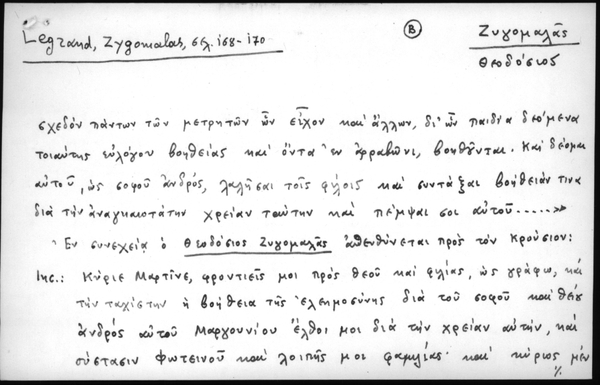 Legrand, Zygomalas, σελ. 168-170
Β
Ζυγομαλᾶς
Θεοδόσιος
σχεδόν πάντων τῶν μετρητῶν ὧν εἶχον καί ἄλλων, δι' ὧν παιδία δεόμενα
τοιαύτης εὐλόγου βοηθείας καί ὄντα ἐν ἀρραβῶνι, βοηθῦνται. Καί δέομαι
αὐτοῦ, ὡς σοφοῦ ἀνδρός, λαλῆσαι τοῖς φίλοις καί συντάξαι βοήθειάν τινα
διά τήν ἀναγκαιοτάτην χρείαν ταύτην καί πέμψαι σοι αὐτοῦ.....»
Ἐν συνεχείᾳ ὁ Θεοδόσιος Ζυγομαλᾶς ἀπευθύνεται πρός τόν Κρούσιον:
Ἰης.: Κύριε Μαρτῖνε, φροντιεῖς μοι πρός θεοῦ καί φιλίας, ὡς γράφω, καί
τήν ταχίστην ἡ βοήθεια τῆς ἐλεημοσύνης διά τοῦ σοφοῦ καί θείου
ἀνδρός αὐτοῦ Μαργουνίου ἔλθοι μοι διά τήν χρείαν αὐτήν, καί
σύστασιν φωτεινοῦ καί λοιπῆς μοι φαμιλίας· καί κύριος μέν
%